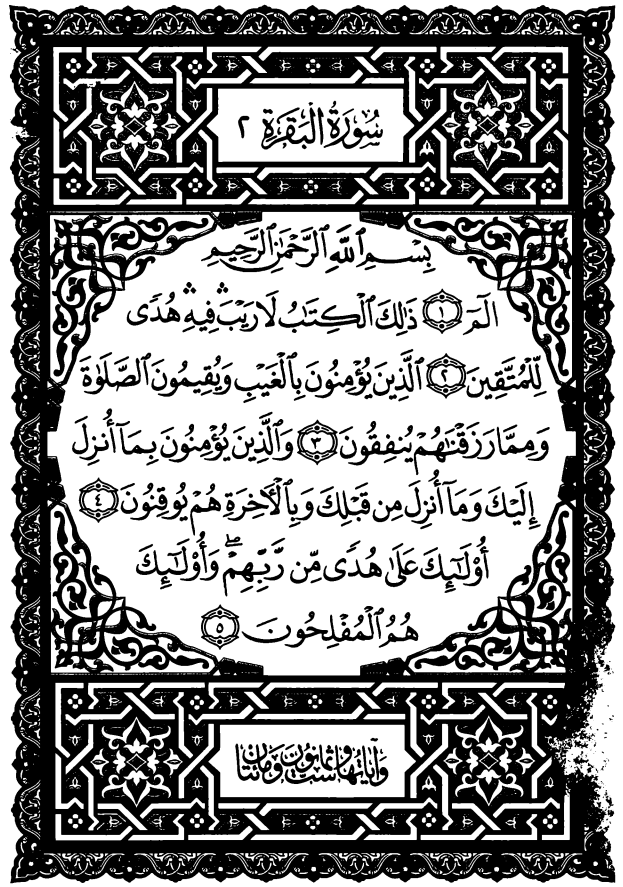 سُورَةُ الْبَقَرَةِ ٢
بِسْمِ ٱللَّهِ ٱلرَّحْمَٰنِ ٱلرَّحِيمِ
الٓمٓ ۝١ ذَٰلِكَ ٱلْكِتَٰبُ لَا رَيْبَ ۛ فِيهِ ۛ هُدًى
لِّلْمُتَّقِينَ ۝٢ ٱلَّذِينَ يُؤْمِنُونَ بِٱلْغَيْبِ وَيُقِيمُونَ ٱلصَّلَوٰةَ
وَمِمَّا رَزَقْنَٰهُمْ يُنفِقُونَ ۝٣ وَٱلَّذِينَ يُؤْمِنُونَ بِمَآ أُنزِلَ
إِلَيْكَ وَمَآ أُنزِلَ مِن قَبْلِكَ وَبِٱلْءَاخِرَةِ هُمْ يُوقِنُونَ ۝٤
أُو۟لَٰٓئِكَ عَلَىٰ هُدًى مِّن رَّبِّهِمْ ۖ وَأُو۟لَٰٓئِكَ
هُمُ ٱلْمُفْلِحُونَ ۝٥
وَآيَاتُهَا سِتٌّ وَثَمَانُونَ وَمِائَتَانِ